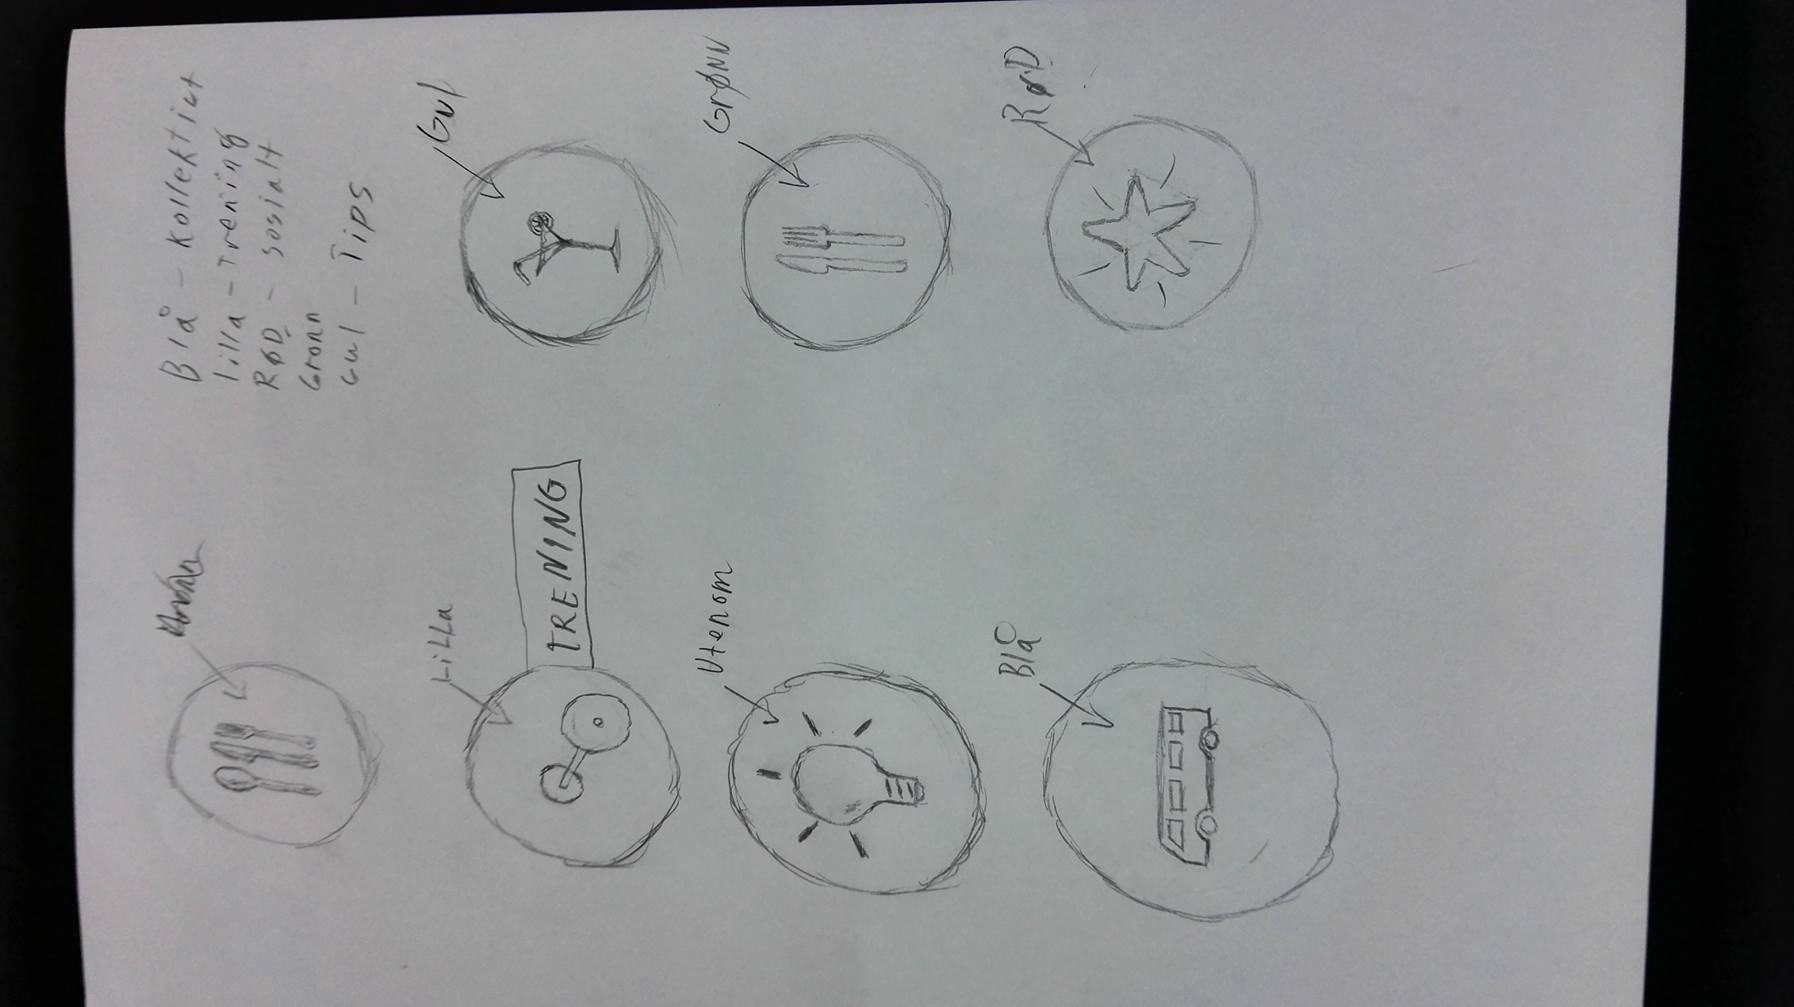 Blå - Kollektivt
lilla - Trening
RØD - sosialt
Grønn
Gul - Tips
LiLLa
Gul
TRENING
Utenom
GrØNN
Blå
RøD